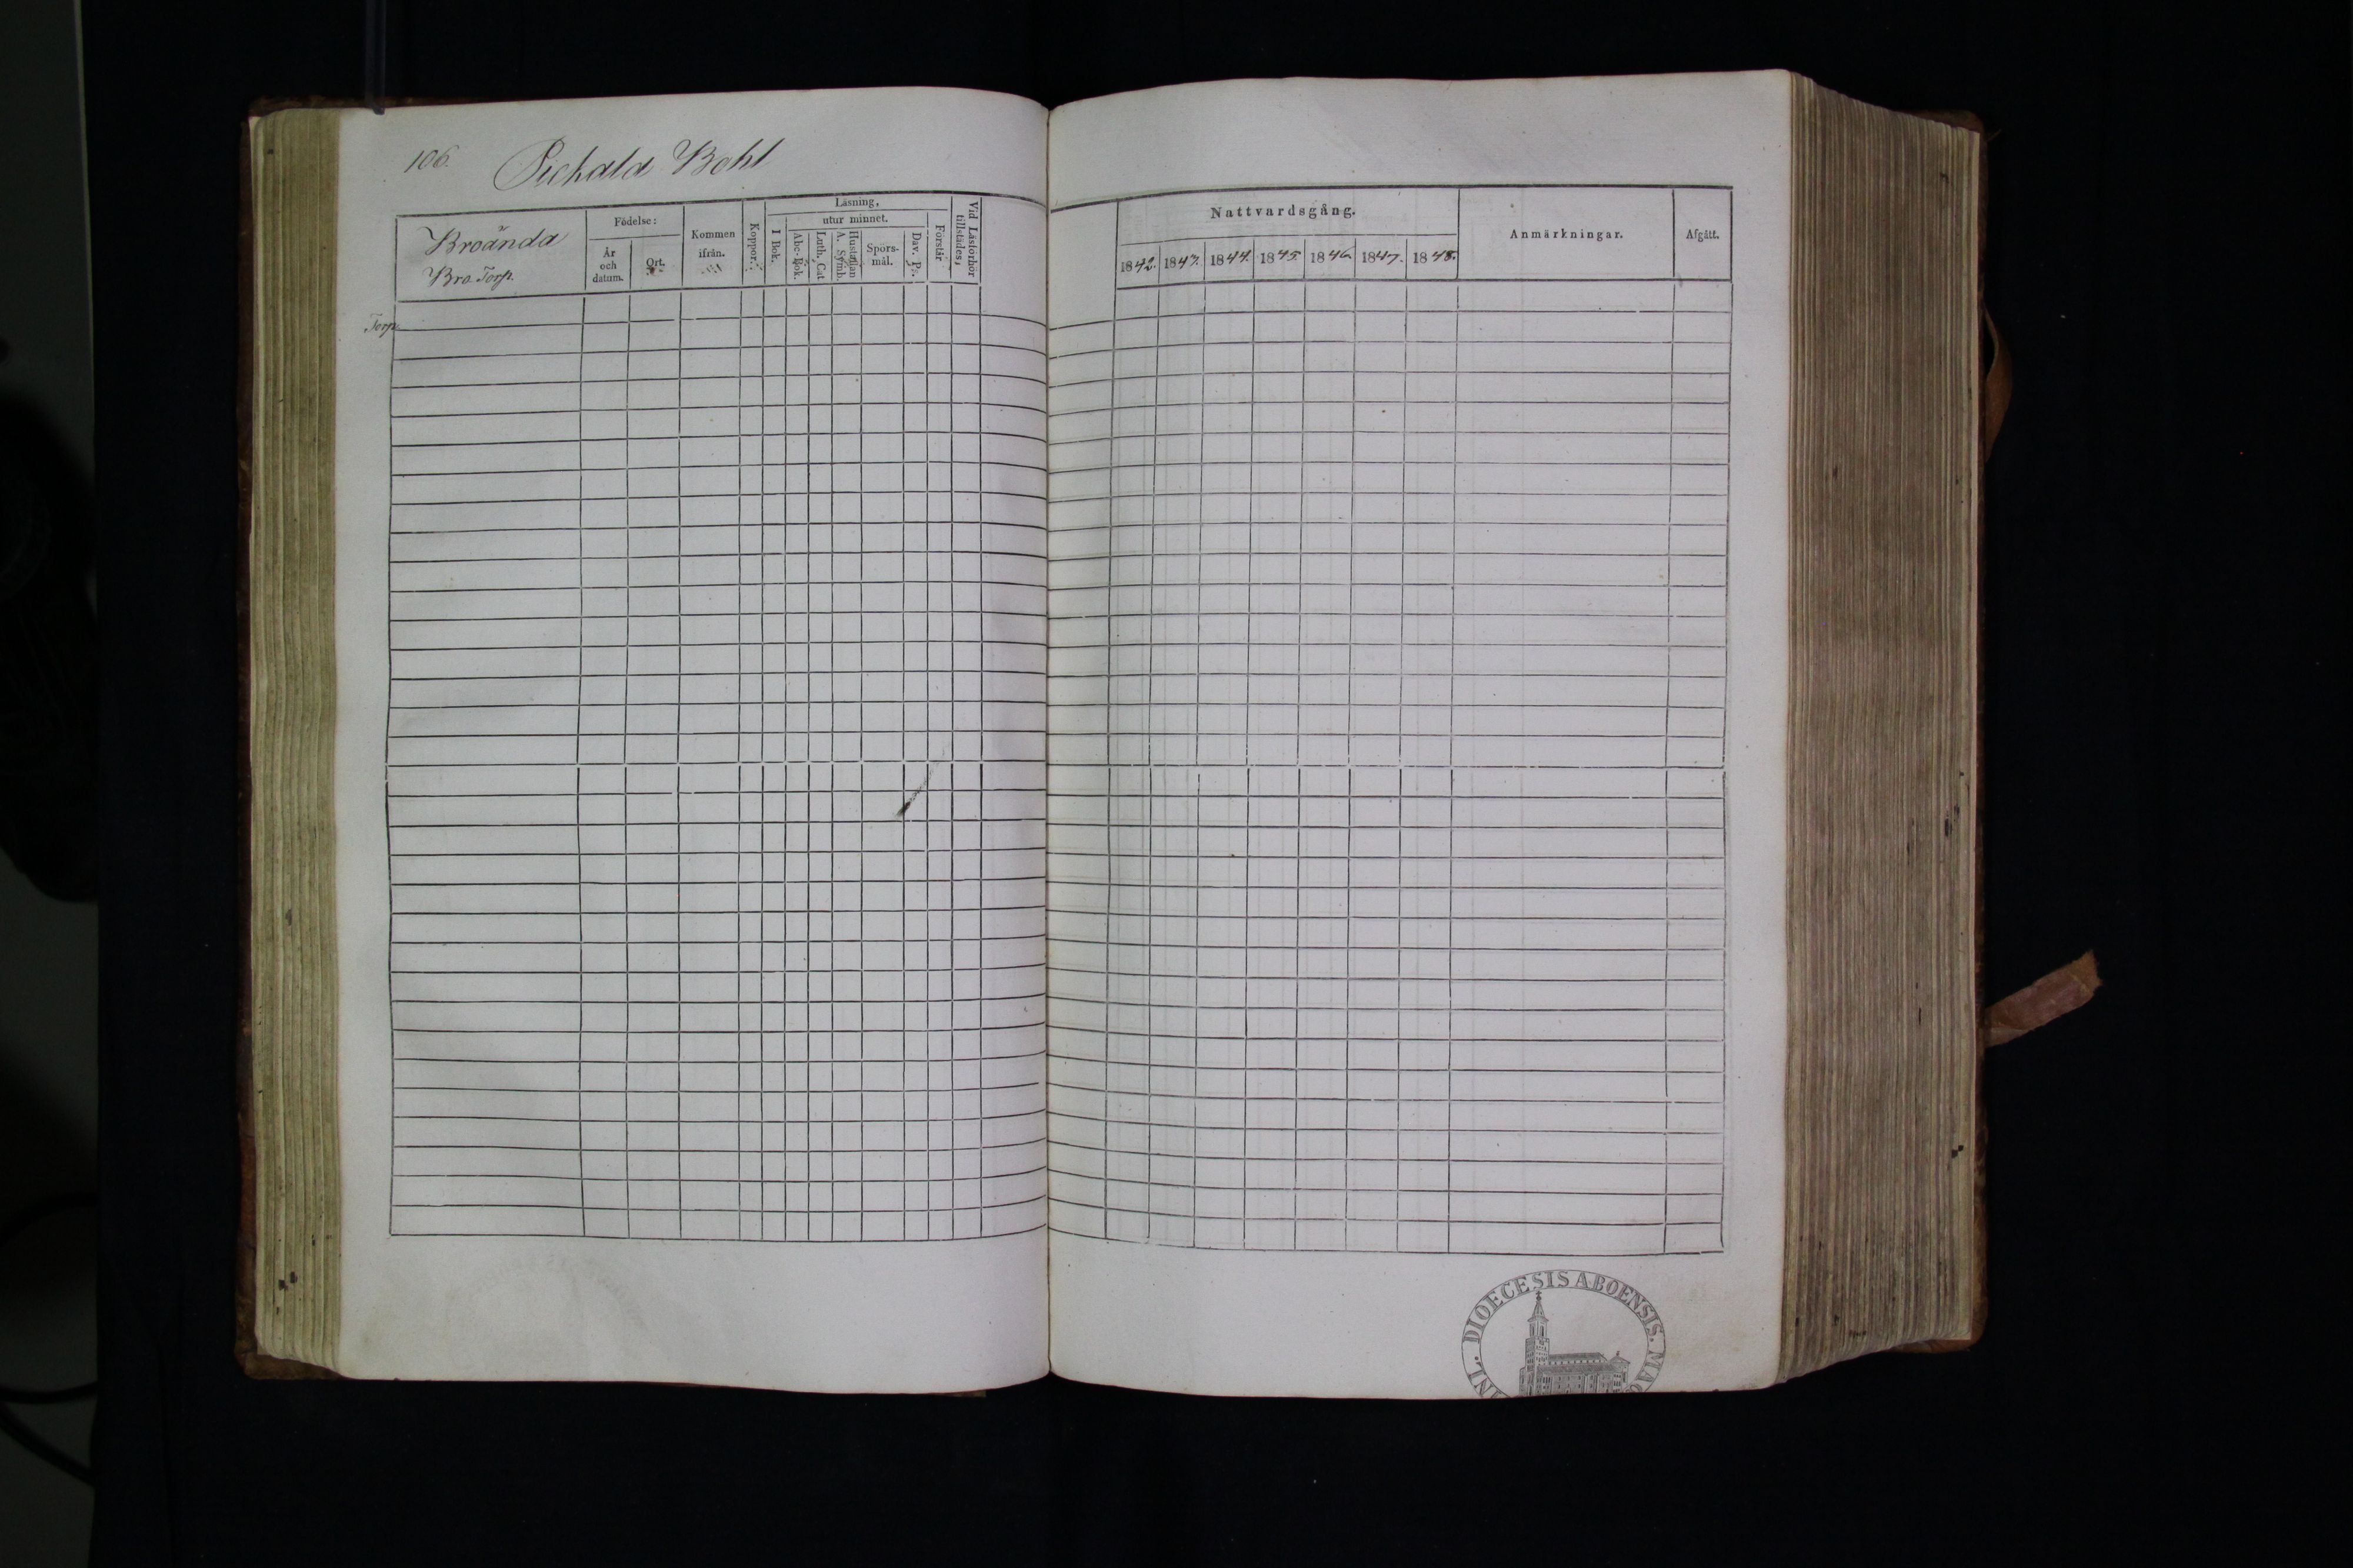 106. Pickala Bohl
Broända
Bro Torp.
Torp
Födelse:
År och datum.
Ort.
Kommen ifrån.
Koppor.
Läsning,
utur minnet.
I Bok.
Abc-Bok.
Luth. Cat.
Hustaflan
A. Symb.
Spörs-
mål.
Dav. Ps.
Förstår
Vid Läsförhör
tillstädes,
Nattvardsgång.
1842. 1843. 1844. 1845. 1846. 1847. 1848.
Anmärkningar.
Afgått.
DIOECESIS ABOENSIS. MAG